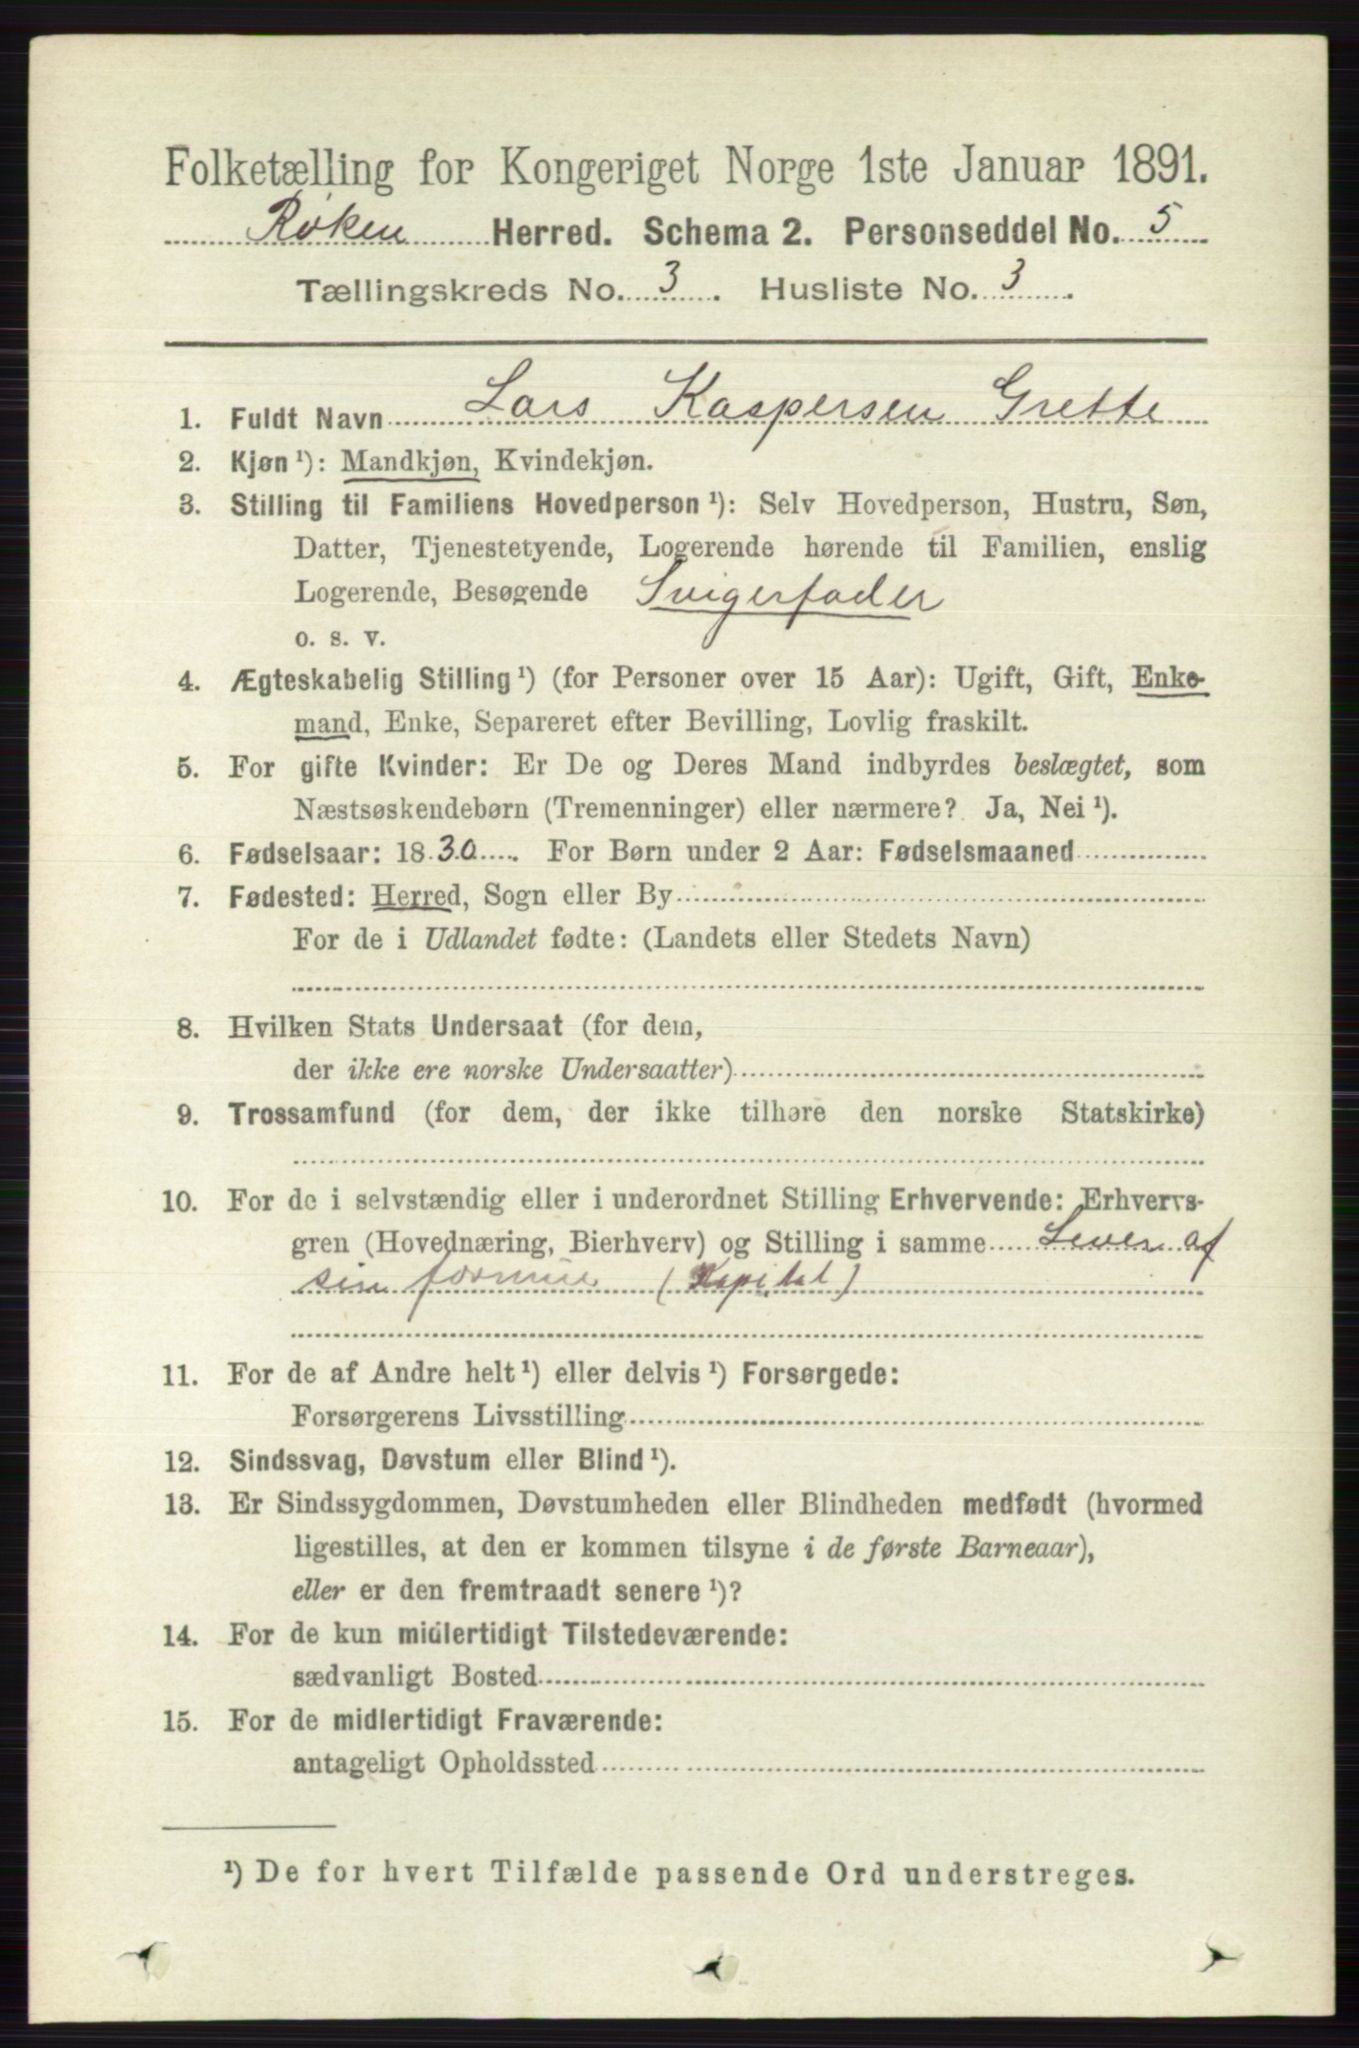 Folketælling for Kongeriget Norge 1ste Januar 1891.
Røken Herred. Schema 2. Personseddel No. 5
Tællingskreds No. 3. Husliste No. 3.
1. Fuldt Navn Lars Kaspersen Grette
2. Kjøn ¹): Mandkjøn, Kvindekjøn.
3. Stilling til Familiens Hovedperson ¹): Selv Hovedperson, Hustru, Søn,
Datter, Tjenestetyende, Logerende hørende til Familien, enslig
Logerende, Besøgende Svigerfader
o. s. v.
4. Ægteskabelig Stilling ¹) (for Personer over 15 Aar): Ugift, Gift, Enke-
mand, Enke, Separeret efter Bevilling, Lovlig fraskilt.
5. For gifte Kvinder: Er De og Deres Mand indbyrdes beslægtet, som
Næstsøskendebørn (Tremenninger) eller nærmere? Ja, Nei ¹).
6. Fødselsaar: 1830. For Børn under 2 Aar: Fødselsmaaned
7. Fødested: Herred, Sogn eller By
For de i Udlandet fødte: (Landets eller Stedets Navn)
8. Hvilken Stats Undersaat (for dem,
der ikke ere norske Undersaatter)
9. Trossamfund (for dem, der ikke tilhøre den norske Statskirke)
10. For de i selvstændig eller i underordnet Stilling Erhvervende: Erhvervs-
gren (Hovednæring, Bierhverv) og Stilling i samme Lever af
sin formue (Kapital)
11. For de af Andre helt ¹) eller delvis ¹) Forsørgede:
Forsørgerens Livsstilling
12. Sindssvag, Døvstum eller Blind ¹).
13. Er Sindssygdommen, Døvstumheden eller Blindheden medfødt (hvormed
ligestilles, at den er kommen tilsyne i de første Barneaar),
eller er den fremtraadt senere ¹)?
14. For de kun midlertidigt Tilstedeværende:
sædvanligt Bosted
15. For de midlertidigt Fraværende:
antageligt Opholdssted
¹) De for hvert Tilfælde passende Ord understreges.